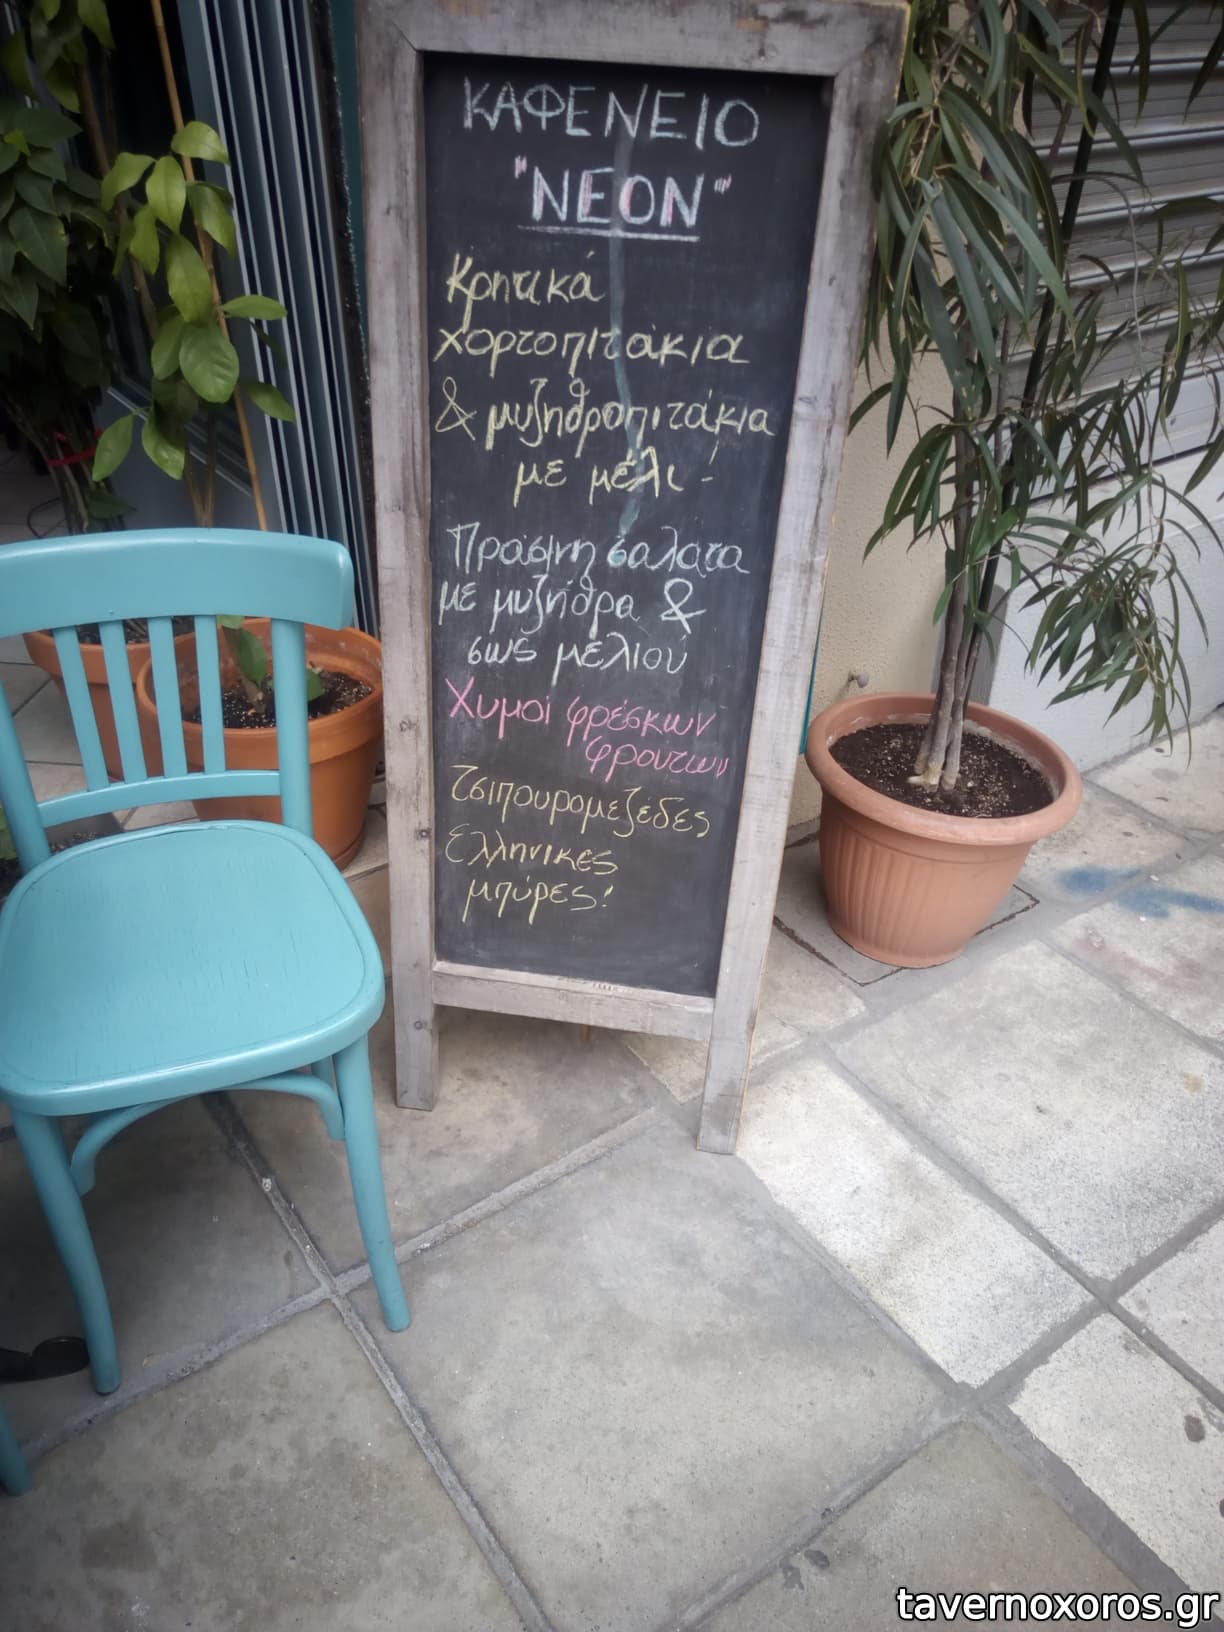 ΚΑΦΕΝΕΙΟ
"ΝΕΟΝ"
Κρητικά
χορτοπιτάκια
& μυζηθροπιτάκια
με μέλι -
Πράσινη σαλάτα
με μυζήθρα &
σως μελιού
Χυμοί φρέσκων
φρουτων
Τσιπουρομεζέδες
Ελληνικες
μπύρες!
tavernoxoros.gr